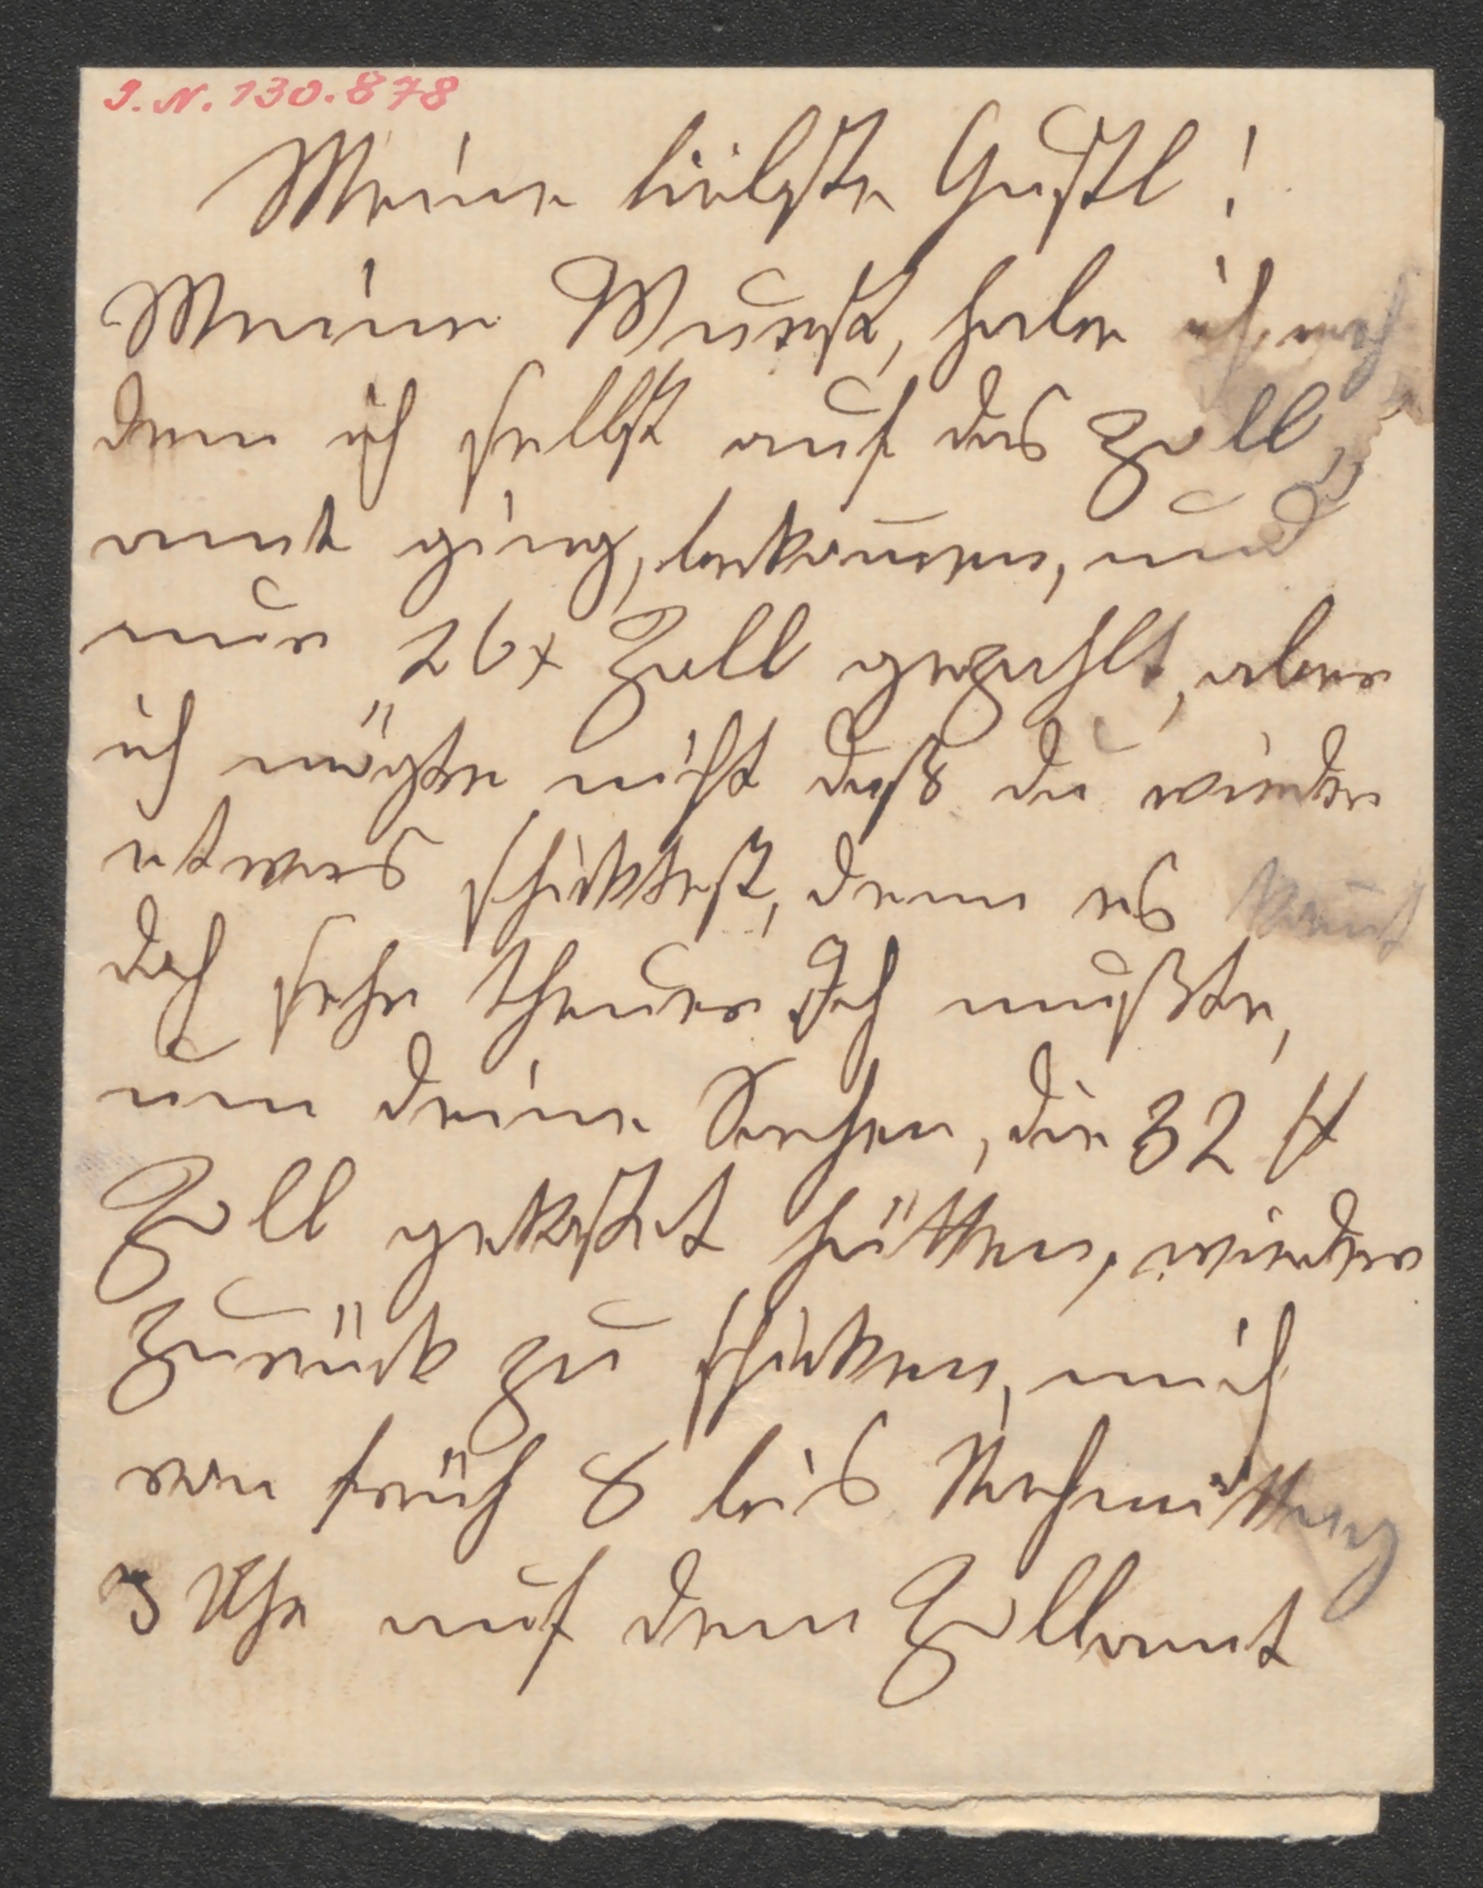 I. N. 130.878
Meine liebste Gustl!
Meine Wurst, habe ich nach
dem ich selbst auf das Zoll
amt ging, bekommen, und
nur 26x Zoll gezahlt, aber
ich mögte nicht daß du wieder
etwas schicktest, denn es kommt
doch sehr theuer Ich mußte,
um deine Sachen, die 32 fl
Zoll gekostet hätten, wieder
zurück zu schicken, mich
von früh 8 bis Nachmittag
3 Uhr auf dem Zollamt